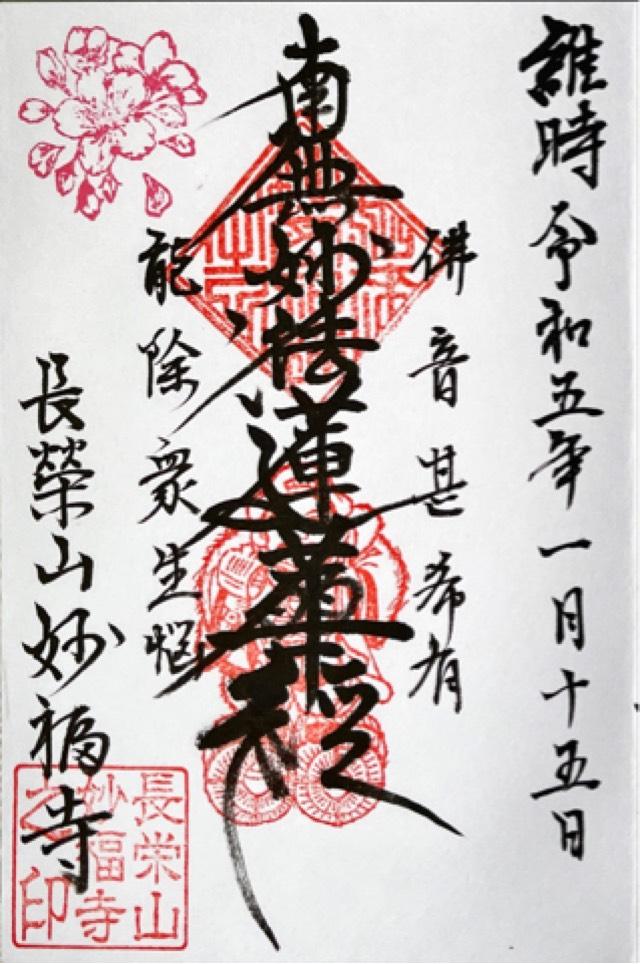 維時令和五年一月十五日
佛音甚希有
南無妙法蓮華経
能除衆生悩
長榮山妙福寺
長栄山
妙福寺
之印